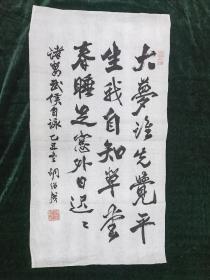 大夢誰先覺平
生我自知草堂
春睡足窓外日遲〻
諸葛武侯自詠乙丑冬胡绍